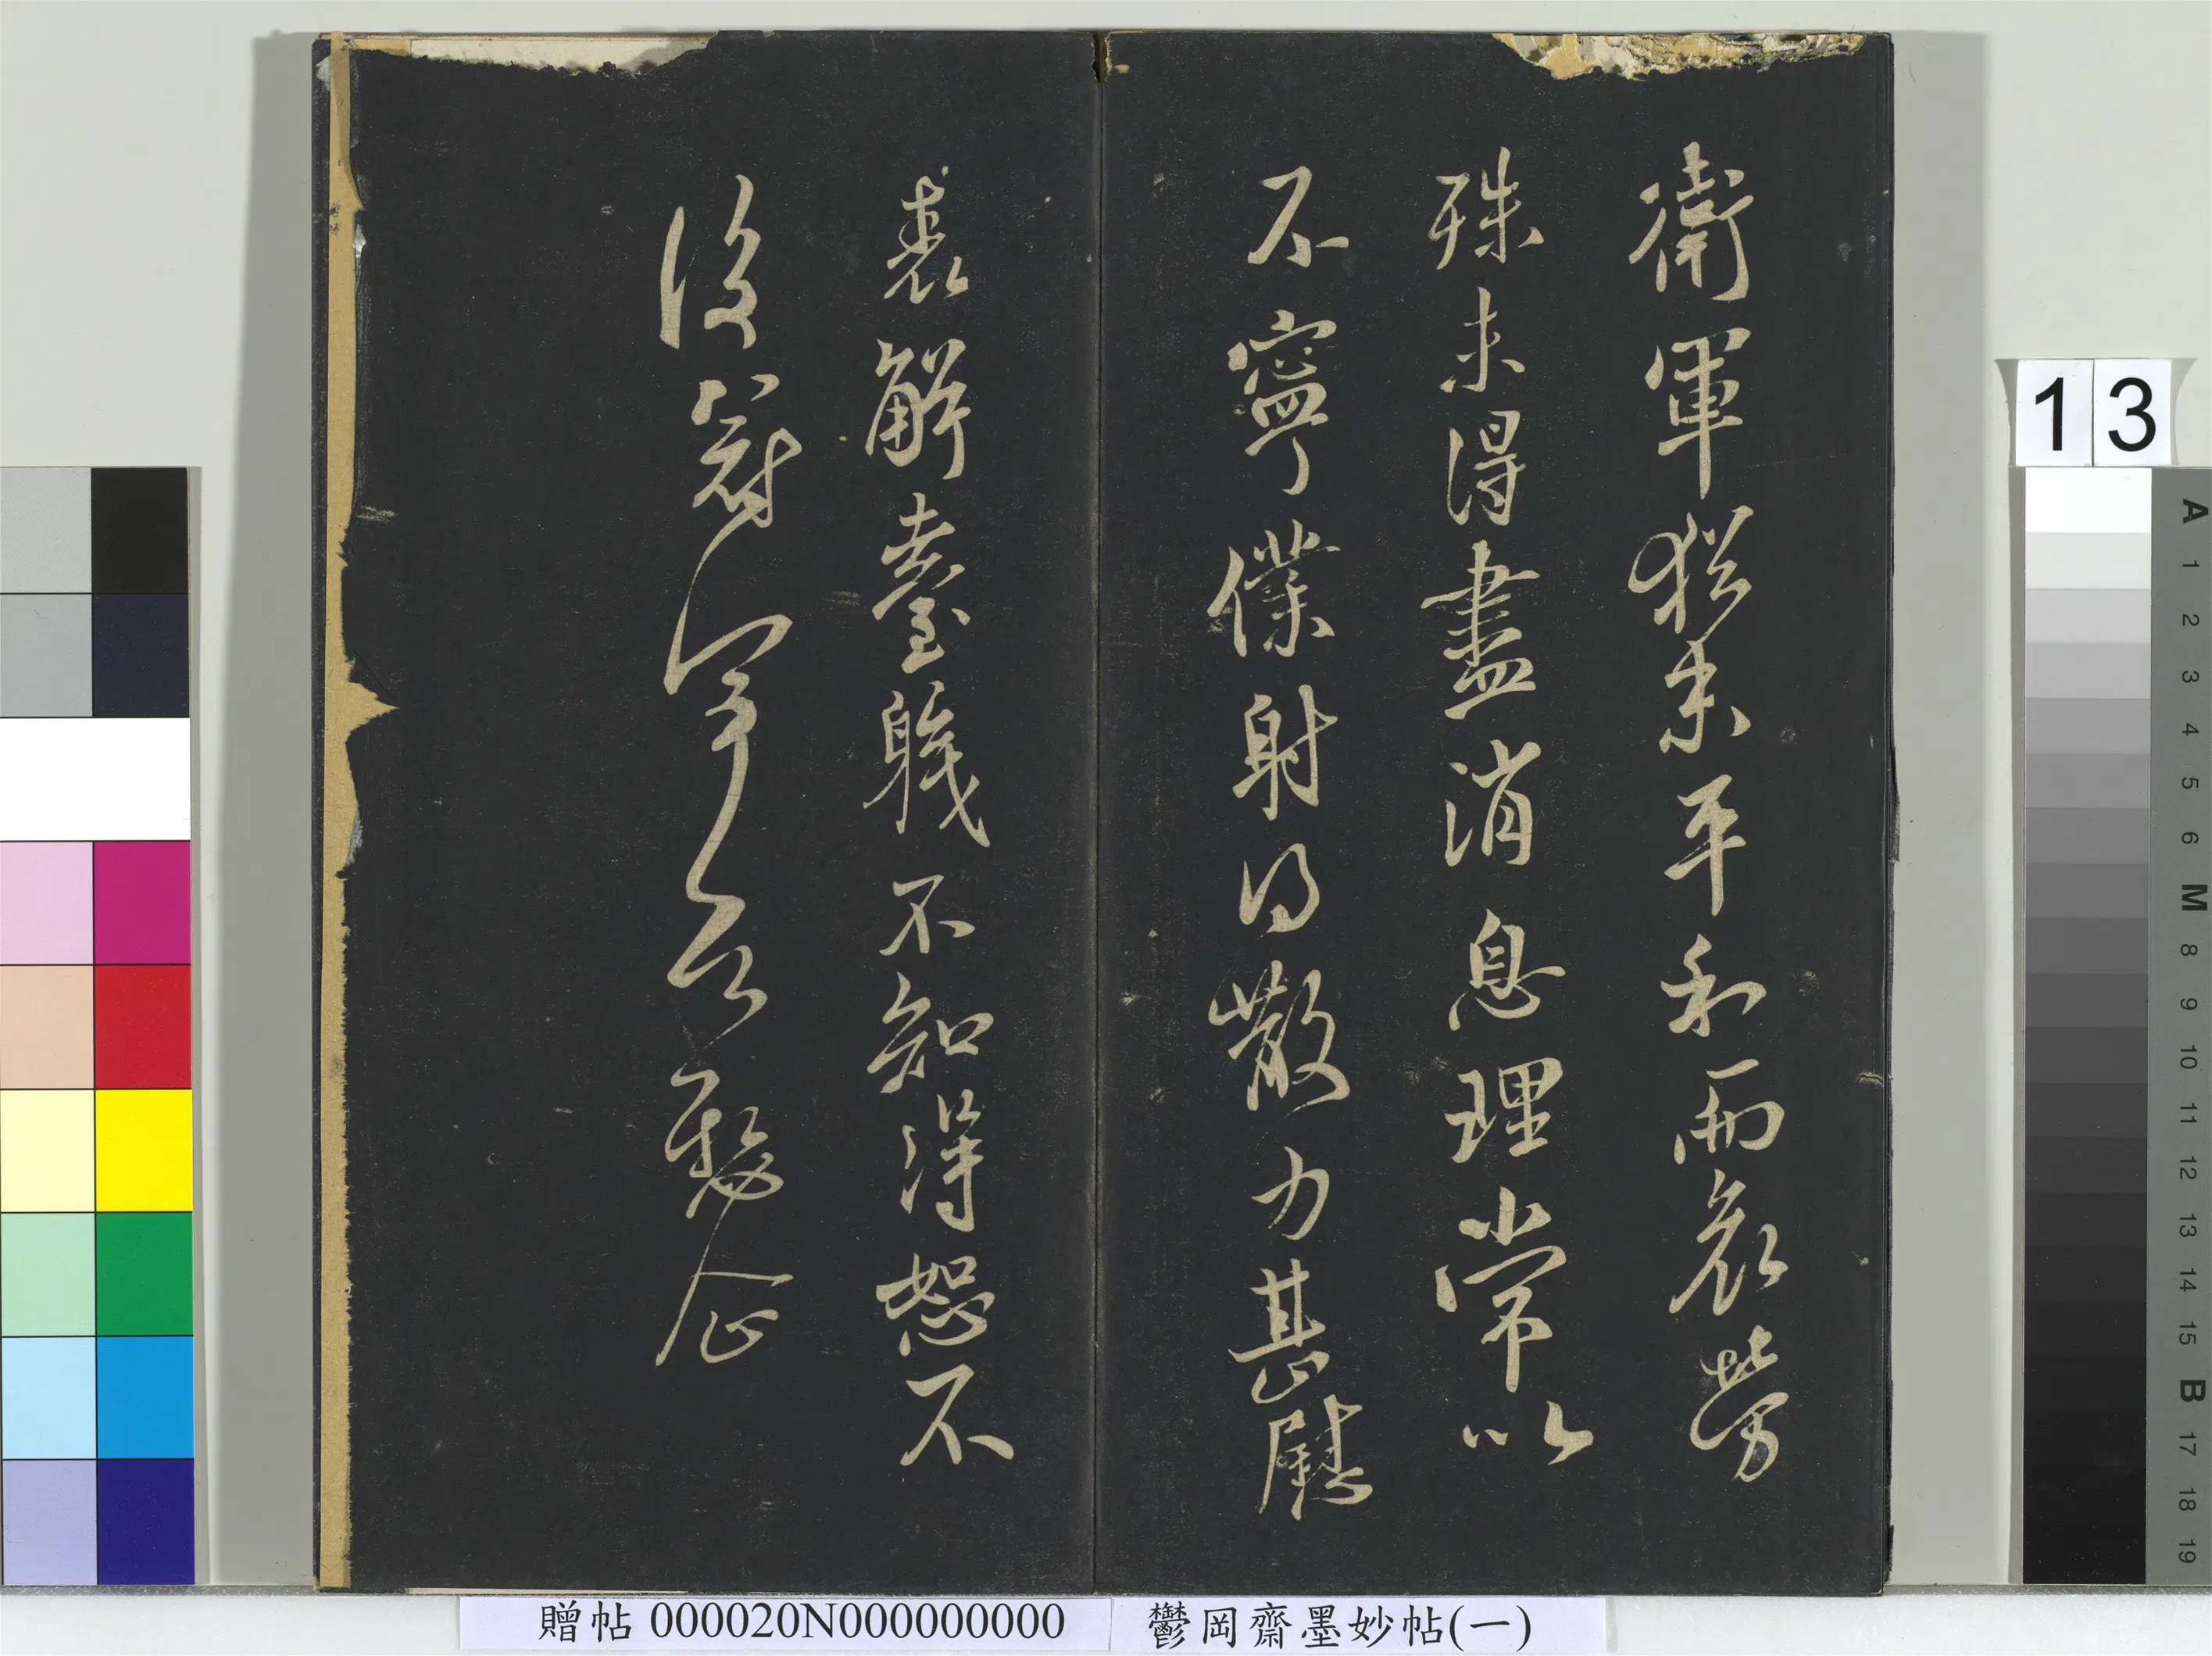 衛軍猶未平和而哀勞
殊未得盡消息理常以
不寧僕射得散力甚慰
表解臺職不知得恕不
企
13
A 1 2 3 4 5 6 M 8 9 10 11 12 13 14 15 B 17 18 19
贈帖 000020N000000000
鬱岡齋墨妙帖(一)